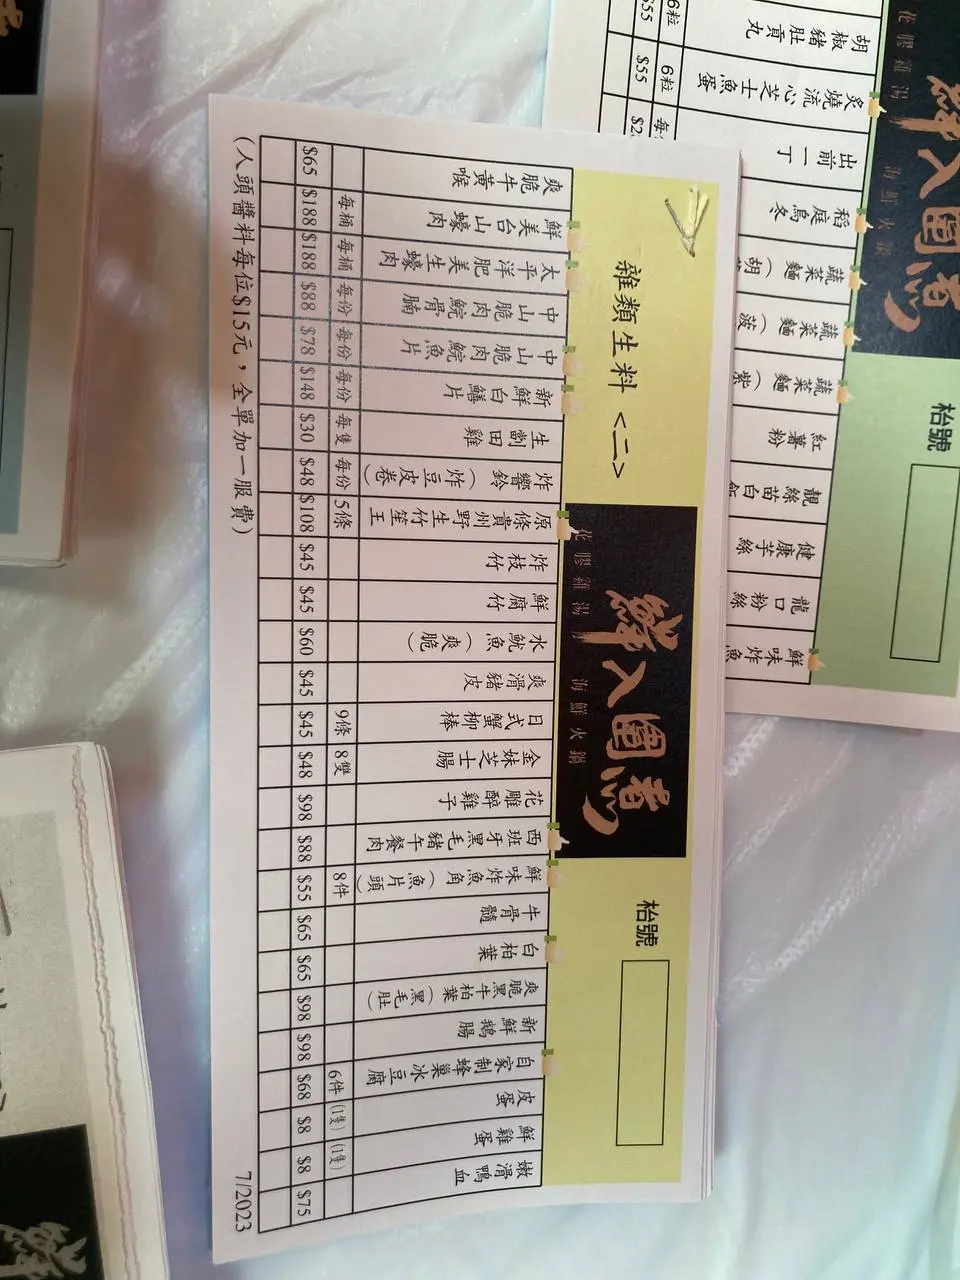 雜類生料 <二>
鮮入圍煮
花膠雞湯 | 海鮮火鍋
枱號
爽脆牛黃喉 $65
鮮美台山蠔肉 每桶 $188
太平洋肥美生蠔肉 每桶 $188
中山脆肉鯇骨腩 每份 $88
中山脆肉鯇魚片 每份 $78
新鮮白鱔片 每份 $148
生劏田雞 每隻 $30
炸響鈴（炸豆皮卷） 每份 $48
原條貴州野生竹笙王 5條 $108
炸枝竹 $45
鮮腐竹 $45
水魷魚（爽脆） $60
爽滑豬皮 $45
日式蟹柳棒 9條 $45
金妹芝士腸 8雙 $48
花雕醉雞子 $98
西班牙黑毛豬午餐肉 $88
鮮味炸魚角（魚片頭） 8件 $55
牛骨髓 $65
白柏葉 $65
爽脆牛柏葉（黑毛肚） $98
新鮮鵝腸 $98
自家制蜂巢冰豆腐 6件 $68
皮蛋 (1隻) $8
鮮雞蛋 (1隻) $8
嫩滑鴨血 $75
(人頭醬料每位$15元，全單加一服費)
7/2023
鮮入圍煮
花膠雞湯 海鮮火鍋
枱號
胡椒豬肚貢丸 6粒 $55
炙燒流心芝士魚蛋 6粒 $55
出前一丁
稻庭烏冬
蔬菜麵（胡
蔬菜麵（菠
蔬菜麵（紫
紅薯粉
靚絲苗白飯
健康芋絲
龍口粉絲
鮮味炸魚